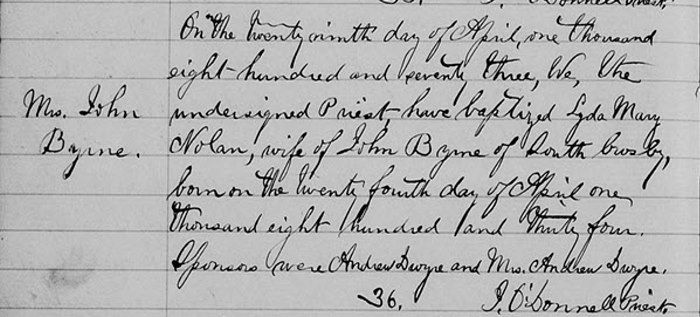 O'Donnell Priest.
On the twenty ninth day of April, one thousand
eight hundred and seventy three, We, the
Mrs. John
undersigned Priest, have baptized Lyda Mary
Byrne.
Nolan, wife of John Byrne of South Crosby,
born on the twenty fourth day of April one
thousand eight hundred and thirty four.
Sponsors were Andrew Dwyre and Mrs. Andrew Dwyre.
36. J. O'Donnell Priest.